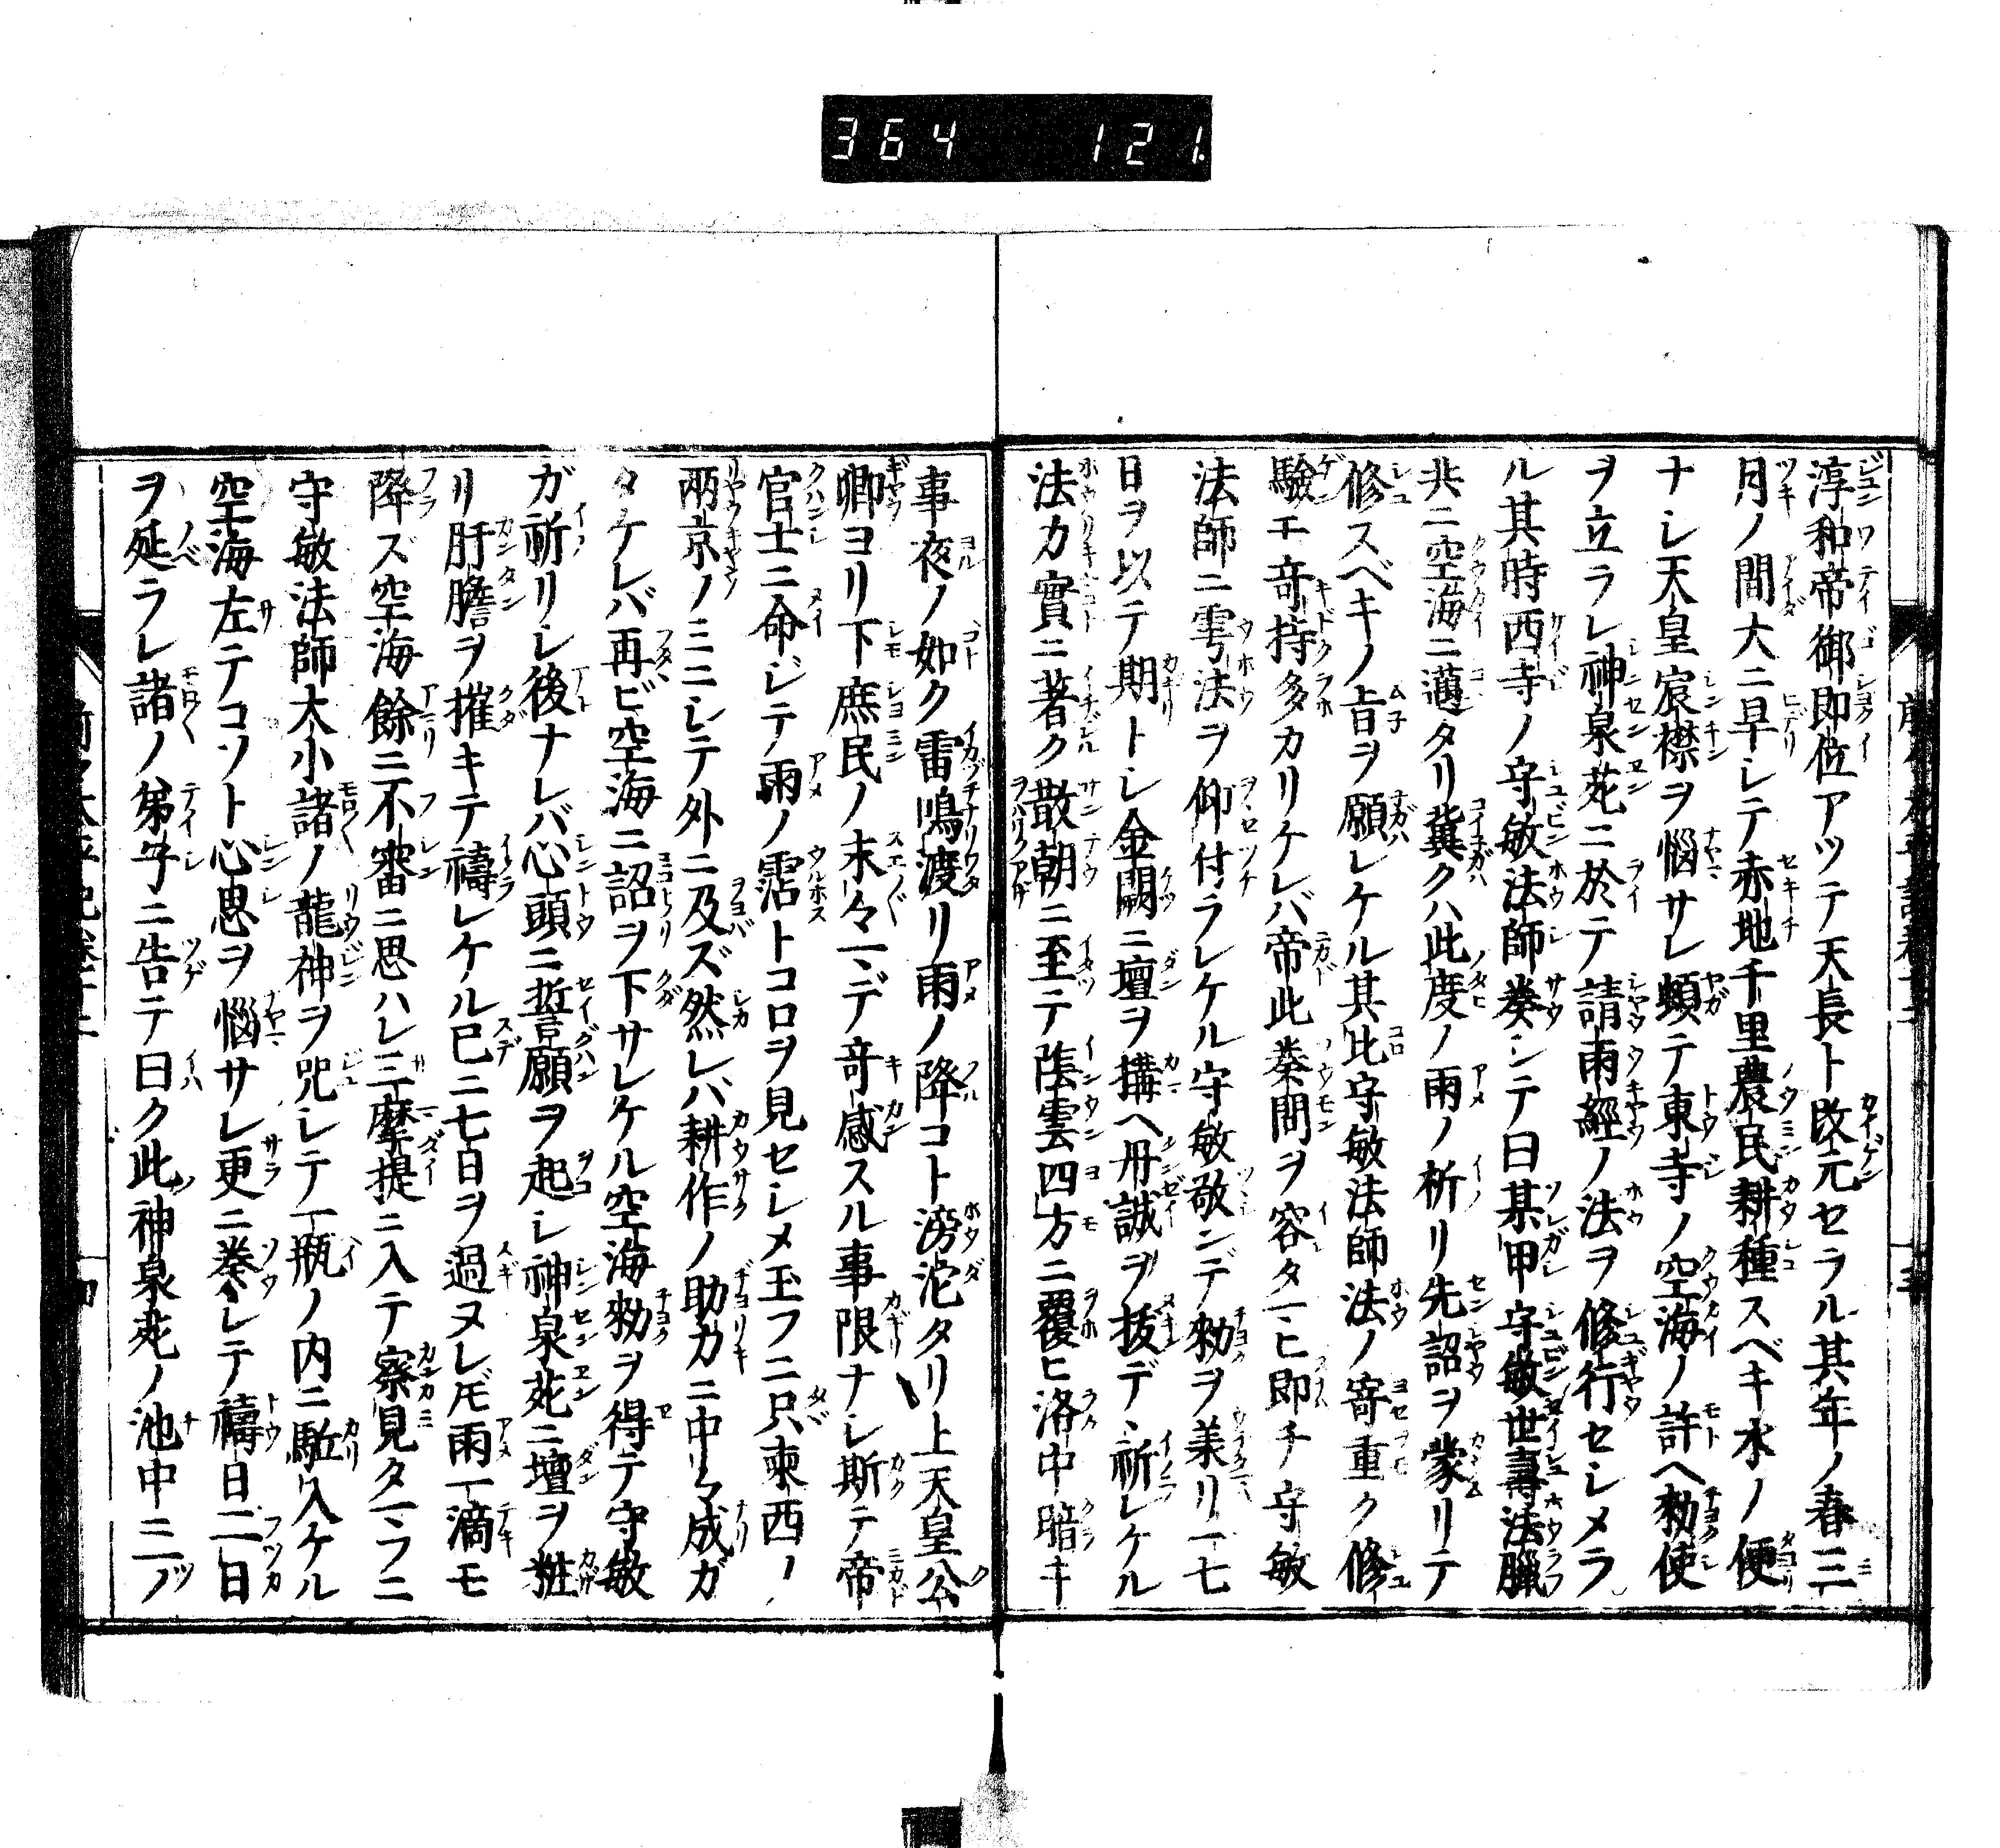 364 121
淳和帝御即位アツテ天長ト改元セラル其年ノ春三
月ノ間大ニ旱シテ赤地千里農民耕種スベキ水ノ便
ナシ天皇宸襟ヲ惱サレ頓テ東寺ノ空海ノ許ヘ勅使
ヲ立ラレ神泉苑ニ於テ請雨經ノ法ヲ修行セシメラ
ル其時西寺ノ守敏法師奏シテ曰某甲守敏世壽法臘
共ニ空海ニ邁タリ冀クハ此度ノ雨ノ祈リ先詔ヲ蒙リテ
修スベキノ旨ヲ願シケル其比守敏法師法ノ寄重ク修
驗エ竒持多カリケレバ帝此奏間ヲ容タマヒ即チ守敏
法師ニ雩法ヲ仰付ラレケル守敏敬ンデ勅ヲ美リ一七
日ヲ以テ期トシ金闕ニ壇ヲ搆ヘ丹誠ヲ抜デヽ祈シケル
法力實ニ著ク散朝ニ至テ陰雲四方ニ覆ヒ洛中暗キ
事夜ノ如ク雷鳴渡リ雨ノ降コト滂沱タリ上天皇公
卿ヨリ下庶民ノ末々マデ竒感スル事限ナシ斯テ帝
官士ニ命ジテ雨ノ霑トコロヲ見セシメ玉フニ只東西ノ
兩京ノミニシテ外ニ及ズ然レバ耕作ノ助力ニ中リ成ガ
タケレバ再ビ空海ニ詔ヲ下サレケル空海勅ヲ得テ守敏
ガ祈リシ後ナレバ心頭ニ誓願ヲ起シ神泉苑ニ壇ヲ粧
リ肝膽ヲ摧キテ禱シケル巳ニ七日ヲ過ヌレ𪜈雨一滴モ
降ズ空海餘ニ不審ニ思ハレ三摩提ニ入テ察見タマフニ
守敏法師大小諸ノ龍神ヲ咒シテ一瓶ノ内ニ駈入ケル
空海左テコソト心思ヲ惱サレ更ニ奏シテ禱日二日
ヲ延ラレ諸ノ弟子ニ告テ曰ク此神泉苑ノ池中ニ一ツノ